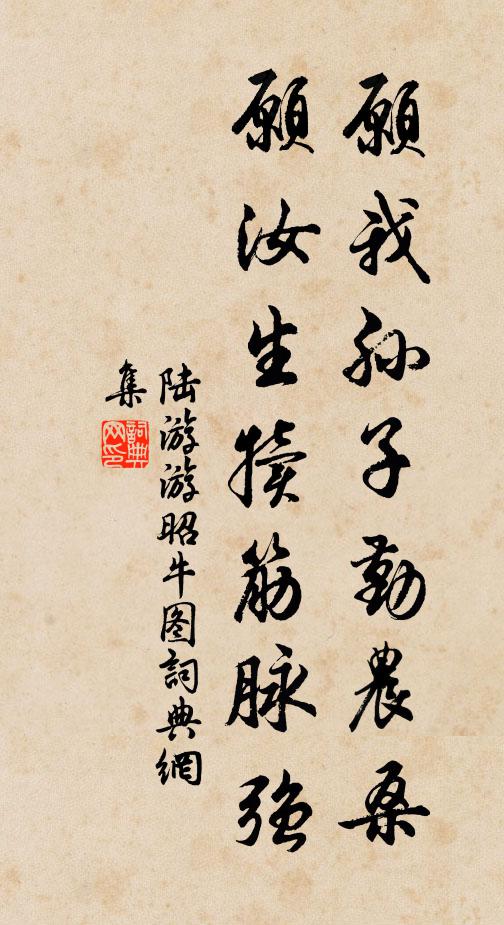 願我孫子勤農桑
願汝生犢筋脉強
陆游游昭牛图詞典網
集
詞典
网印